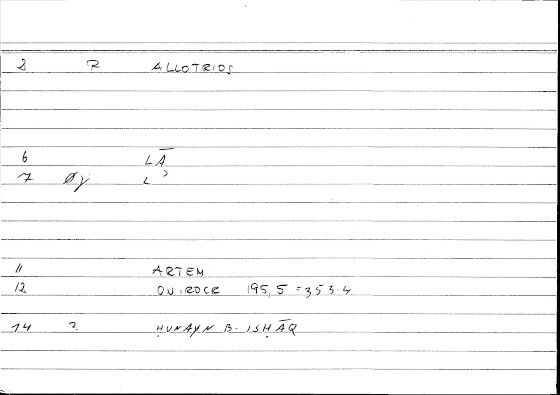 8 R ALLOTRIOS
6 LĀ
7 Øj L ʾ
11 ARTEM
12 ONIROCR 195,5 = 353.4
14 2 ḤUNAYN B. ISḤĀQ